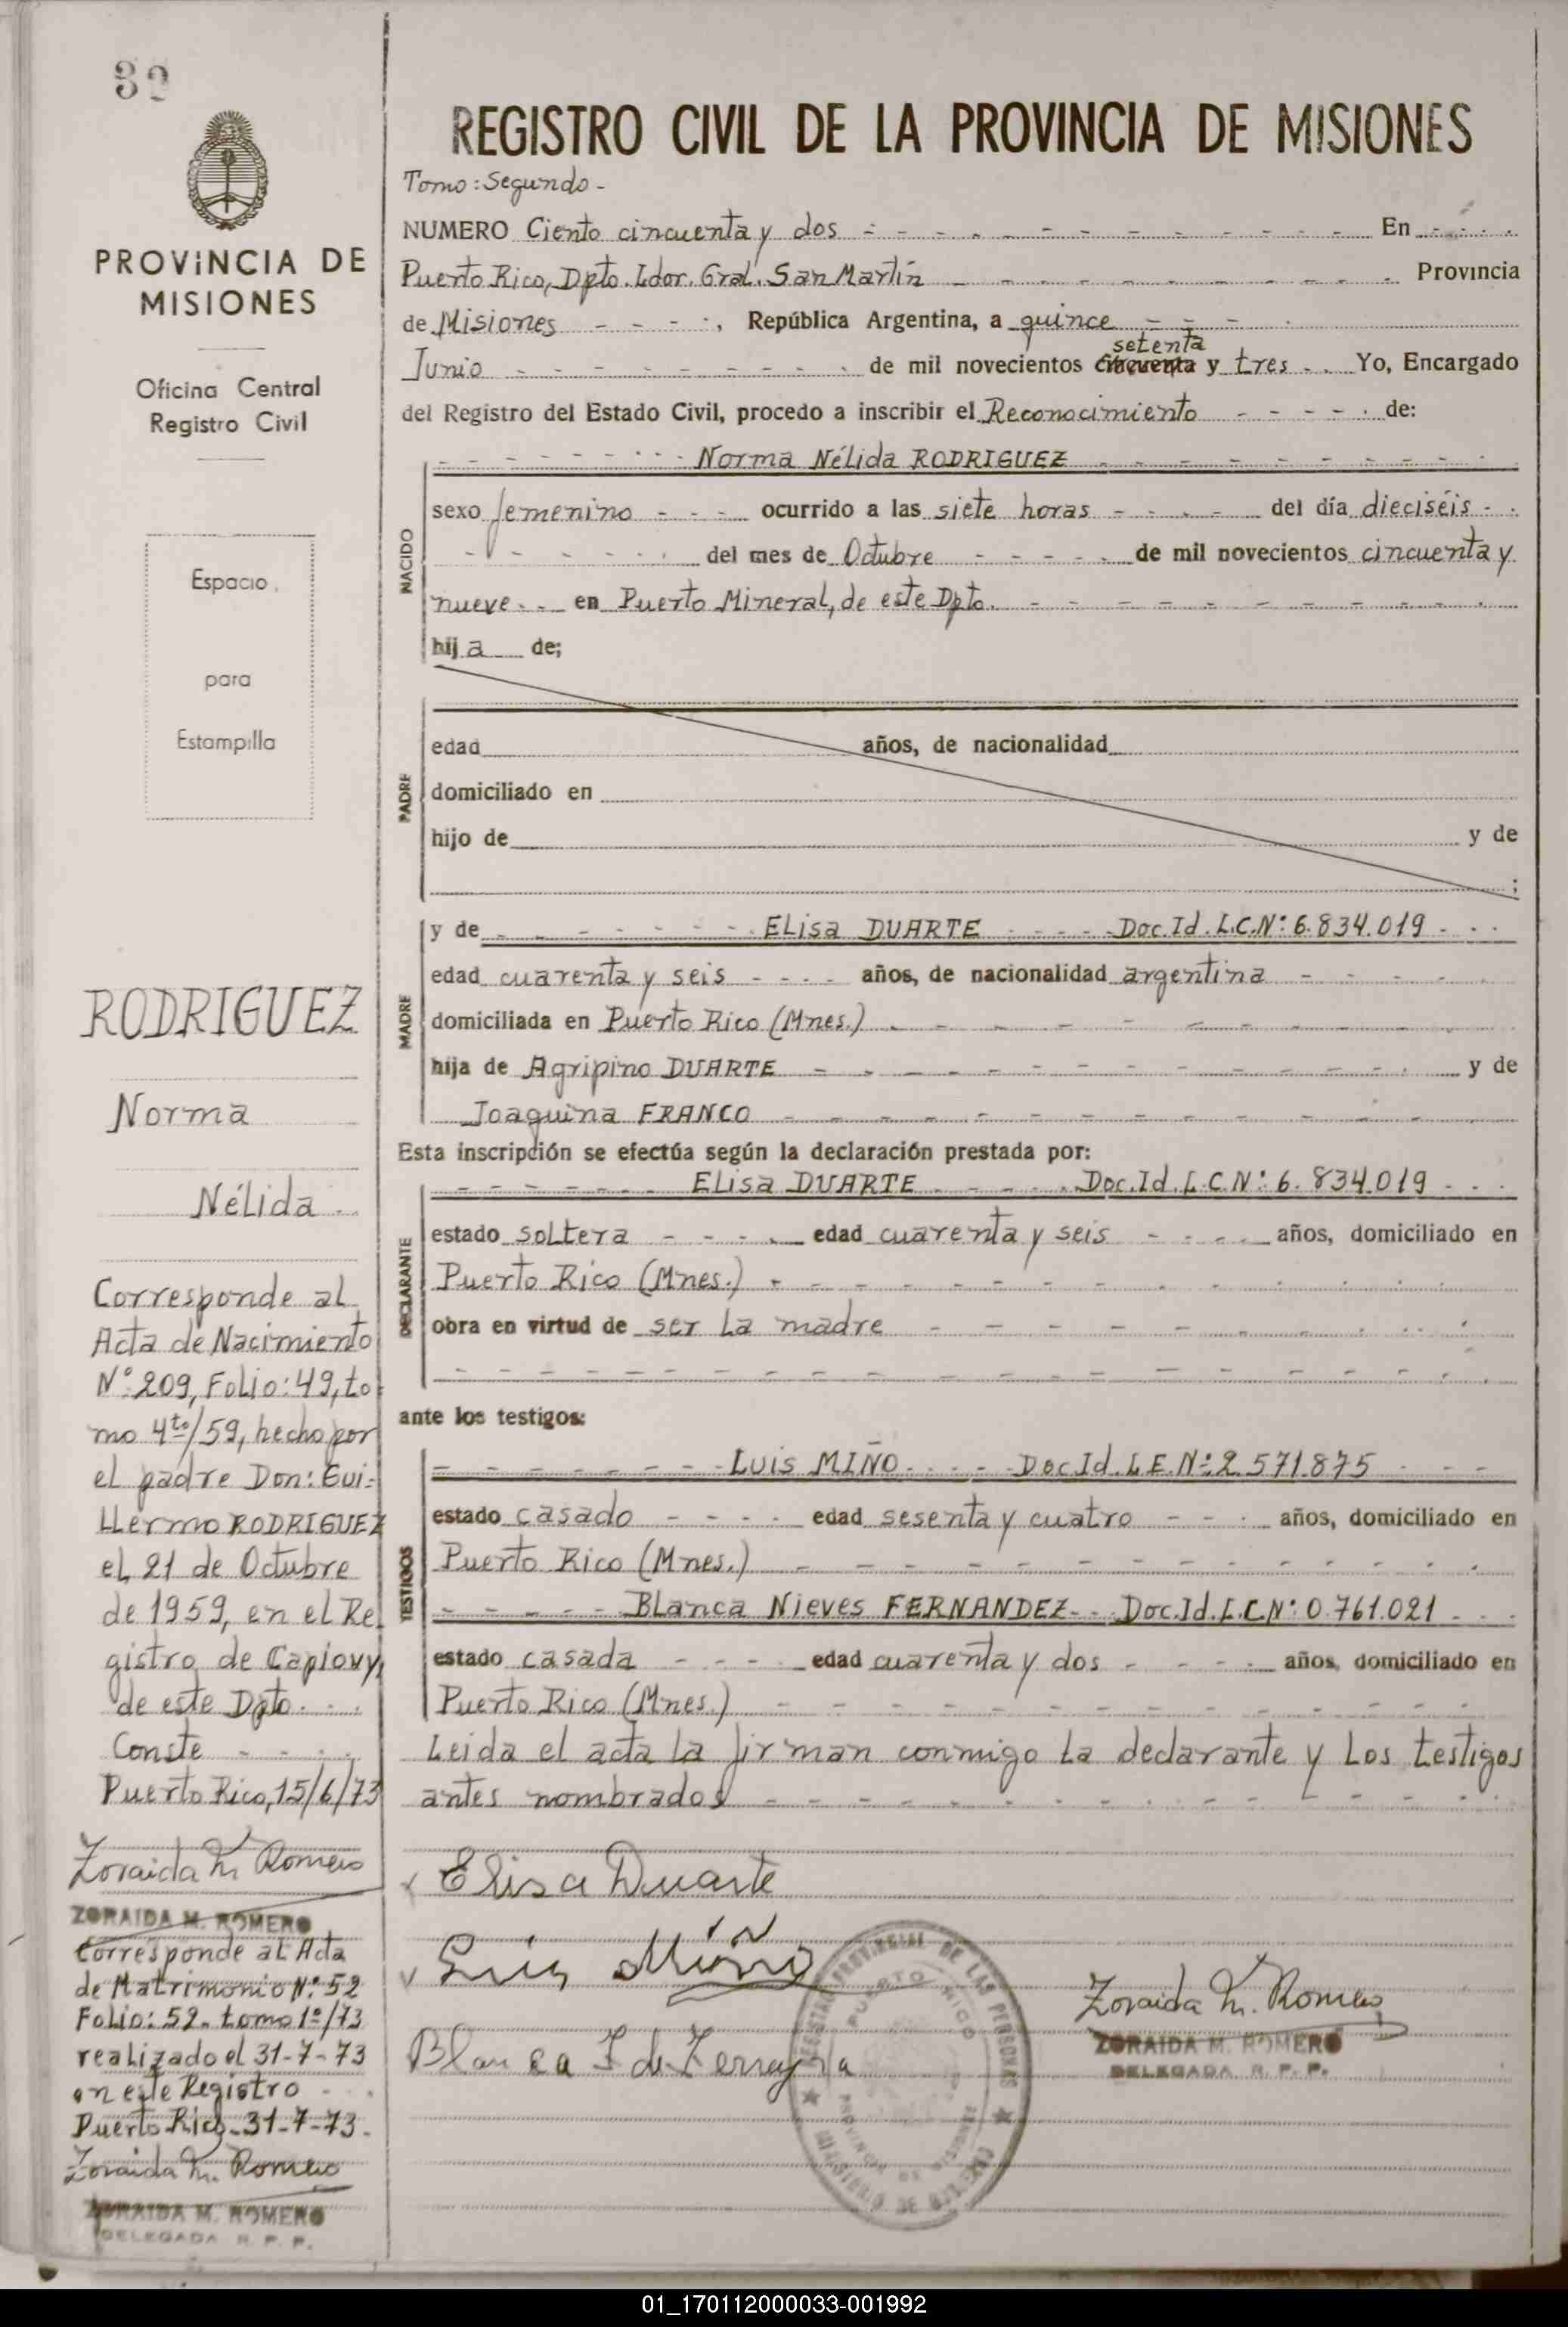 32
PROVINCIA DE
MISIONES
Oficina Central
Registro Civil
Espacio
para
Estampilla
RODRIGUEZ
Norma
Nélida
Corresponde al
Acta de Nacimiento
N° 209, Folio: 49, to
mo 4to/59, hecho por
el padre Don: Gui-
llermo RODRIGUEZ
el 21 de Octubre
de 1959, en el Re
gistro de Capiovy,
de este Dpto.
Conste
Puerto Rico, 15/6/73
Zoraida M. Romero
ZORAIDA M. ROMERO
Corresponde al Acta
de Matrimonio N° 52
Folio: 52. tomo 1°/73
realizado el 31-7-73
en este Registro
Puerto Rico-31-7-73.
Zoraida M. Romero
ZORAIDA M. ROMERO
DELEGADA R. P. P.
REGISTRO CIVIL DE LA PROVINCIA DE MISIONES
Tomo: Segundo -
NUMERO Ciento cincuenta y dos En
Puerto Rico, Dpto. Ldor. Gral. San Martín Provincia
de Misiones, República Argentina, a quince
setenta
Junio de mil novecientos cincuenta y tres Yo, Encargado
del Registro del Estado Civil, procedo a inscribir el Reconocimiento de:
Norma Nélida RODRIGUEZ
NACIDO
sexo femenino ocurrido a las siete horas del día dieciséis
del mes de Octubre de mil novecientos cincuenta y
nueve en Puerto Mineral, de este Dpto.
hija de;
PADRE
edad años, de nacionalidad
domiciliado en
hijo de y de
;
MADRE
y de Elisa DUARTE Doc. Id. L.C.N°: 6.834.019
edad cuarenta y seis años, de nacionalidad argentina
domiciliada en Puerto Rico (Mnes.)
hija de Agripino DUARTE y de
Joaquina FRANCO
Esta inscripción se efectúa según la declaración prestada por:
DECLARANTE
Elisa DUARTE Doc. Id. L.C.N°: 6.834.019
estado soltera edad cuarenta y seis años, domiciliado en
Puerto Rico (Mnes.)
obra en virtud de ser la madre
ante los testigos:
TESTIGOS
Luis MIÑO Doc. Id. L.E.N°: 2.571.875
estado casado edad sesenta y cuatro años, domiciliado en
Puerto Rico (Mnes.)
Blanca Nieves FERNANDEZ Doc. Id. L.C.N°: 0.761.021
estado casada edad cuarenta y dos años, domiciliado en
Puerto Rico (Mnes.)
Leida el acta la firman conmigo la declarante y los testigos
antes nombrados
Elisa Duarte
Luis Miño
Blanca F de Ferreyra
REGISTRO PROVINCIAL DE LAS PERSONAS
PUERTO RICO
PROVINCIA DE MISIONES
MINISTERIO DE
Zoraida M. Romero
ZORAIDA M. ROMERO
DELEGADA R. P. P.
01_170112000033-001992